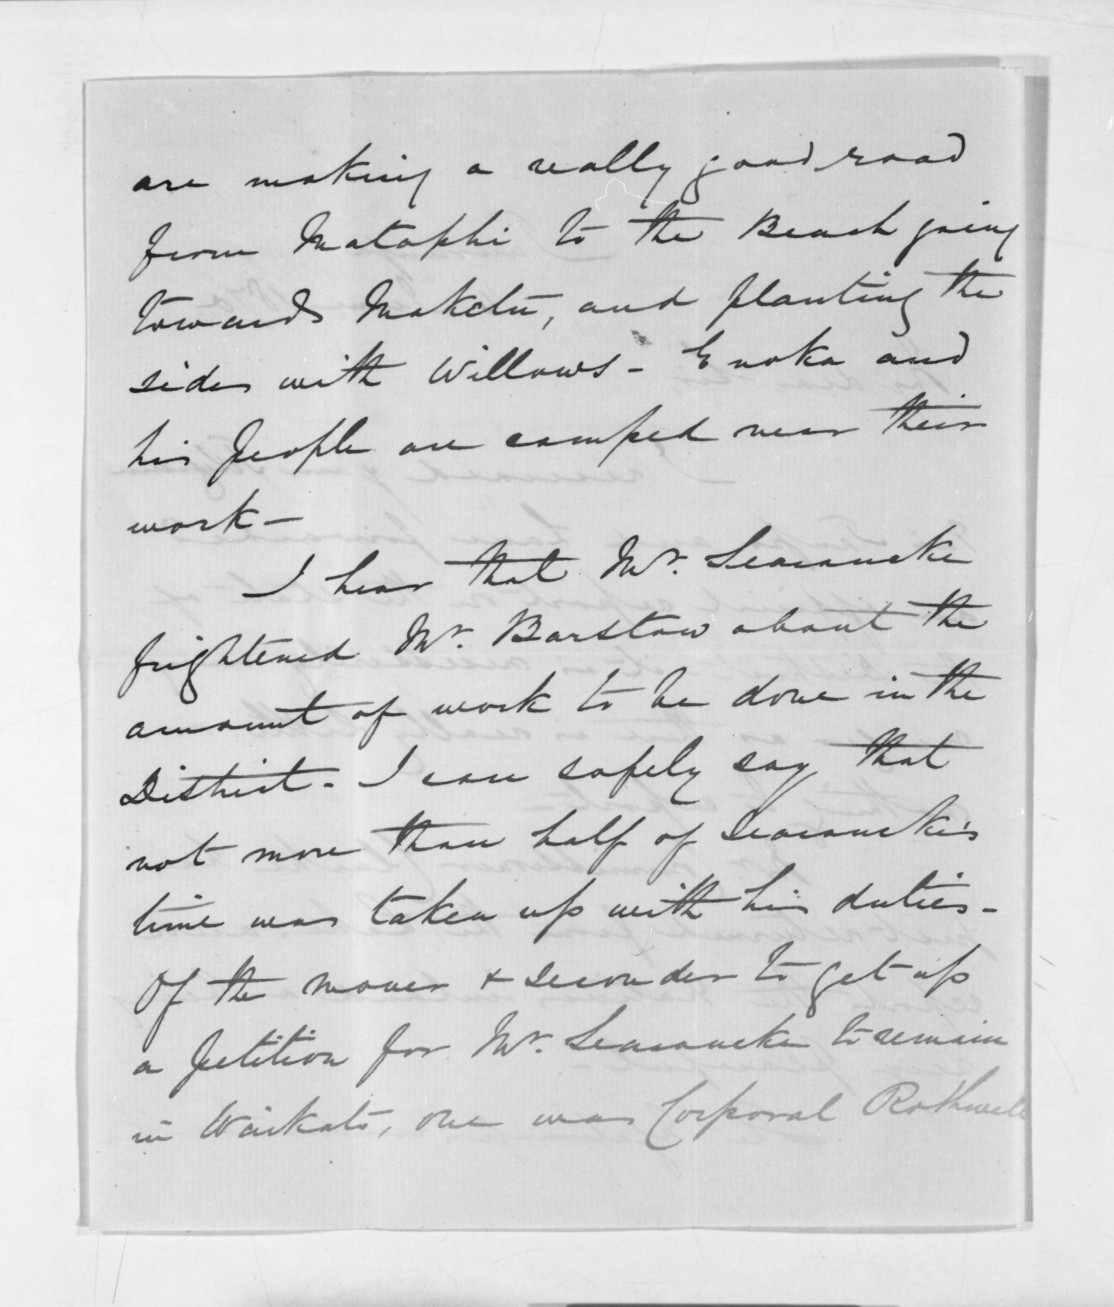 are making a really good road
from Mataphi to the Beach going
towards Maketu, and planting the
sides with Willows - Enoka and
his People are camped near their
work -
I hear that Mr. Searancke
frightened Mr. Barstow about the
amount of work to be done in the
District. - I can safely say that
not more than half of Searancke's
time was taken up with his duties -
Of the mover & seconder to get up
a Petition for Mr. Searancke to remain
in Waikato, one was Corporal Rothwell